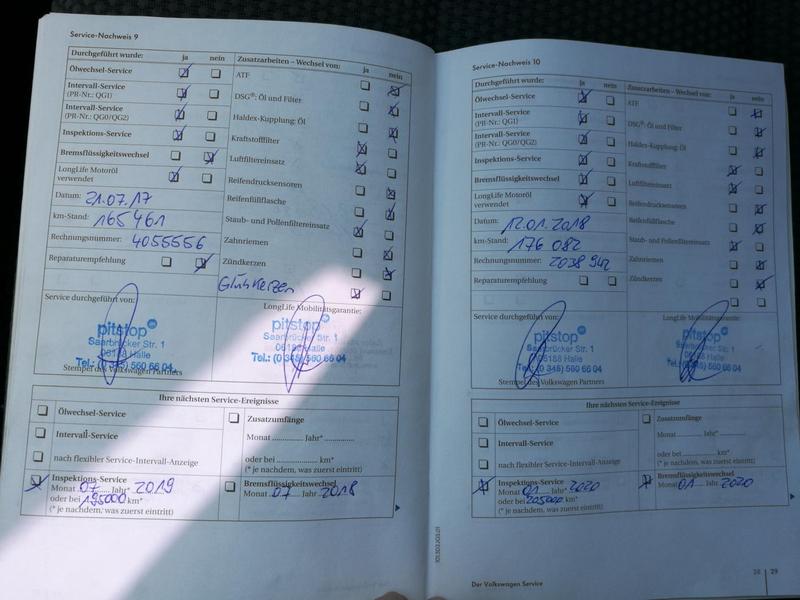 Service-Nachweis 9
Durchgeführt wurde: ja nein
Ölwechsel-Service
Intervall-Service
(PR-Nr.: QG1)
Intervall-Service
(PR-Nr.: QG0/QG2)
Inspektions-Service
Bremsflüssigkeitswechsel
LongLife Motoröl
verwendet
Datum: 21.07.17
km-Stand: 165461
Rechnungsnummer: 4055556
Reparaturempfehlung
Zusatzarbeiten – Wechsel von: ja nein
ATF
DSG®: Öl und Filter
Haldex-Kupplung: Öl
Kraftstofffilter
Luftfiltereinsatz
Reifendrucksensoren
Reifenfüllflasche
Staub- und Pollenfiltereinsatz
Zahnriemen
Zündkerzen
Glühkerzen
Service durchgeführt von:
pitstop
Saarbrücker Str. 1
06188 Halle
Tel.: (0 345) 560 66 04
Stempel des Volkswagen Partners
LongLife Mobilitätsgarantie:
pitstop
Saarbrücker Str. 1
06188 Halle
Tel.: (0 345) 560 66 04
Ihre nächsten Service-Ereignisse
Ölwechsel-Service
Intervall-Service
nach flexibler Service-Intervall-Anzeige
Inspektions-Service
Monat 07 Jahr* 2019
oder bei 195000 km*
(* je nachdem, was zuerst eintritt)
Zusatzumfänge
Monat ............ Jahr* ............
oder bei ............ km*
(* je nachdem, was zuerst eintritt)
Bremsflüssigkeitswechsel
Monat 07 Jahr 2018
Service-Nachweis 10
Durchgeführt wurde: ja nein
Ölwechsel-Service
Intervall-Service
(PR-Nr.: QG1)
Intervall-Service
(PR-Nr.: QG0/QG2)
Inspektions-Service
Bremsflüssigkeitswechsel
LongLife Motoröl
verwendet
Datum: 12.01.2018
km-Stand: 176 082
Rechnungsnummer: 2038 942
Reparaturempfehlung
Zusatzarbeiten – Wechsel von: ja nein
ATF
DSG®: Öl und Filter
Haldex-Kupplung: Öl
Kraftstofffilter
Luftfiltereinsatz
Reifendrucksensoren
Reifenfüllflasche
Staub- und Pollenfiltereinsatz
Zahnriemen
Zündkerzen
Service durchgeführt von:
pitstop
Saarbrücker Str. 1
06188 Halle
Tel.: (0 345) 560 66 04
Stempel des Volkswagen Partners
LongLife Mobilitätsgarantie:
pitstop
Saarbrücker Str. 1
06188 Halle
Tel.: (0 345) 560 66 04
Ihre nächsten Service-Ereignisse
Ölwechsel-Service
Intervall-Service
nach flexibler Service-Intervall-Anzeige
Inspektions-Service
Monat 01 Jahr* 2020
oder bei 205000 km*
(* je nachdem, was zuerst eintritt)
Zusatzumfänge
Monat ............ Jahr* ............
oder bei ............ km*
(* je nachdem, was zuerst eintritt)
Bremsflüssigkeitswechsel
Monat 01 Jahr 2020
Der Volkswagen Service
28 | 29